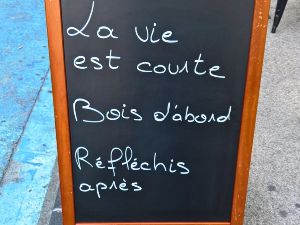 La vie
est courte
Bois d'abord
Réfléchis
après